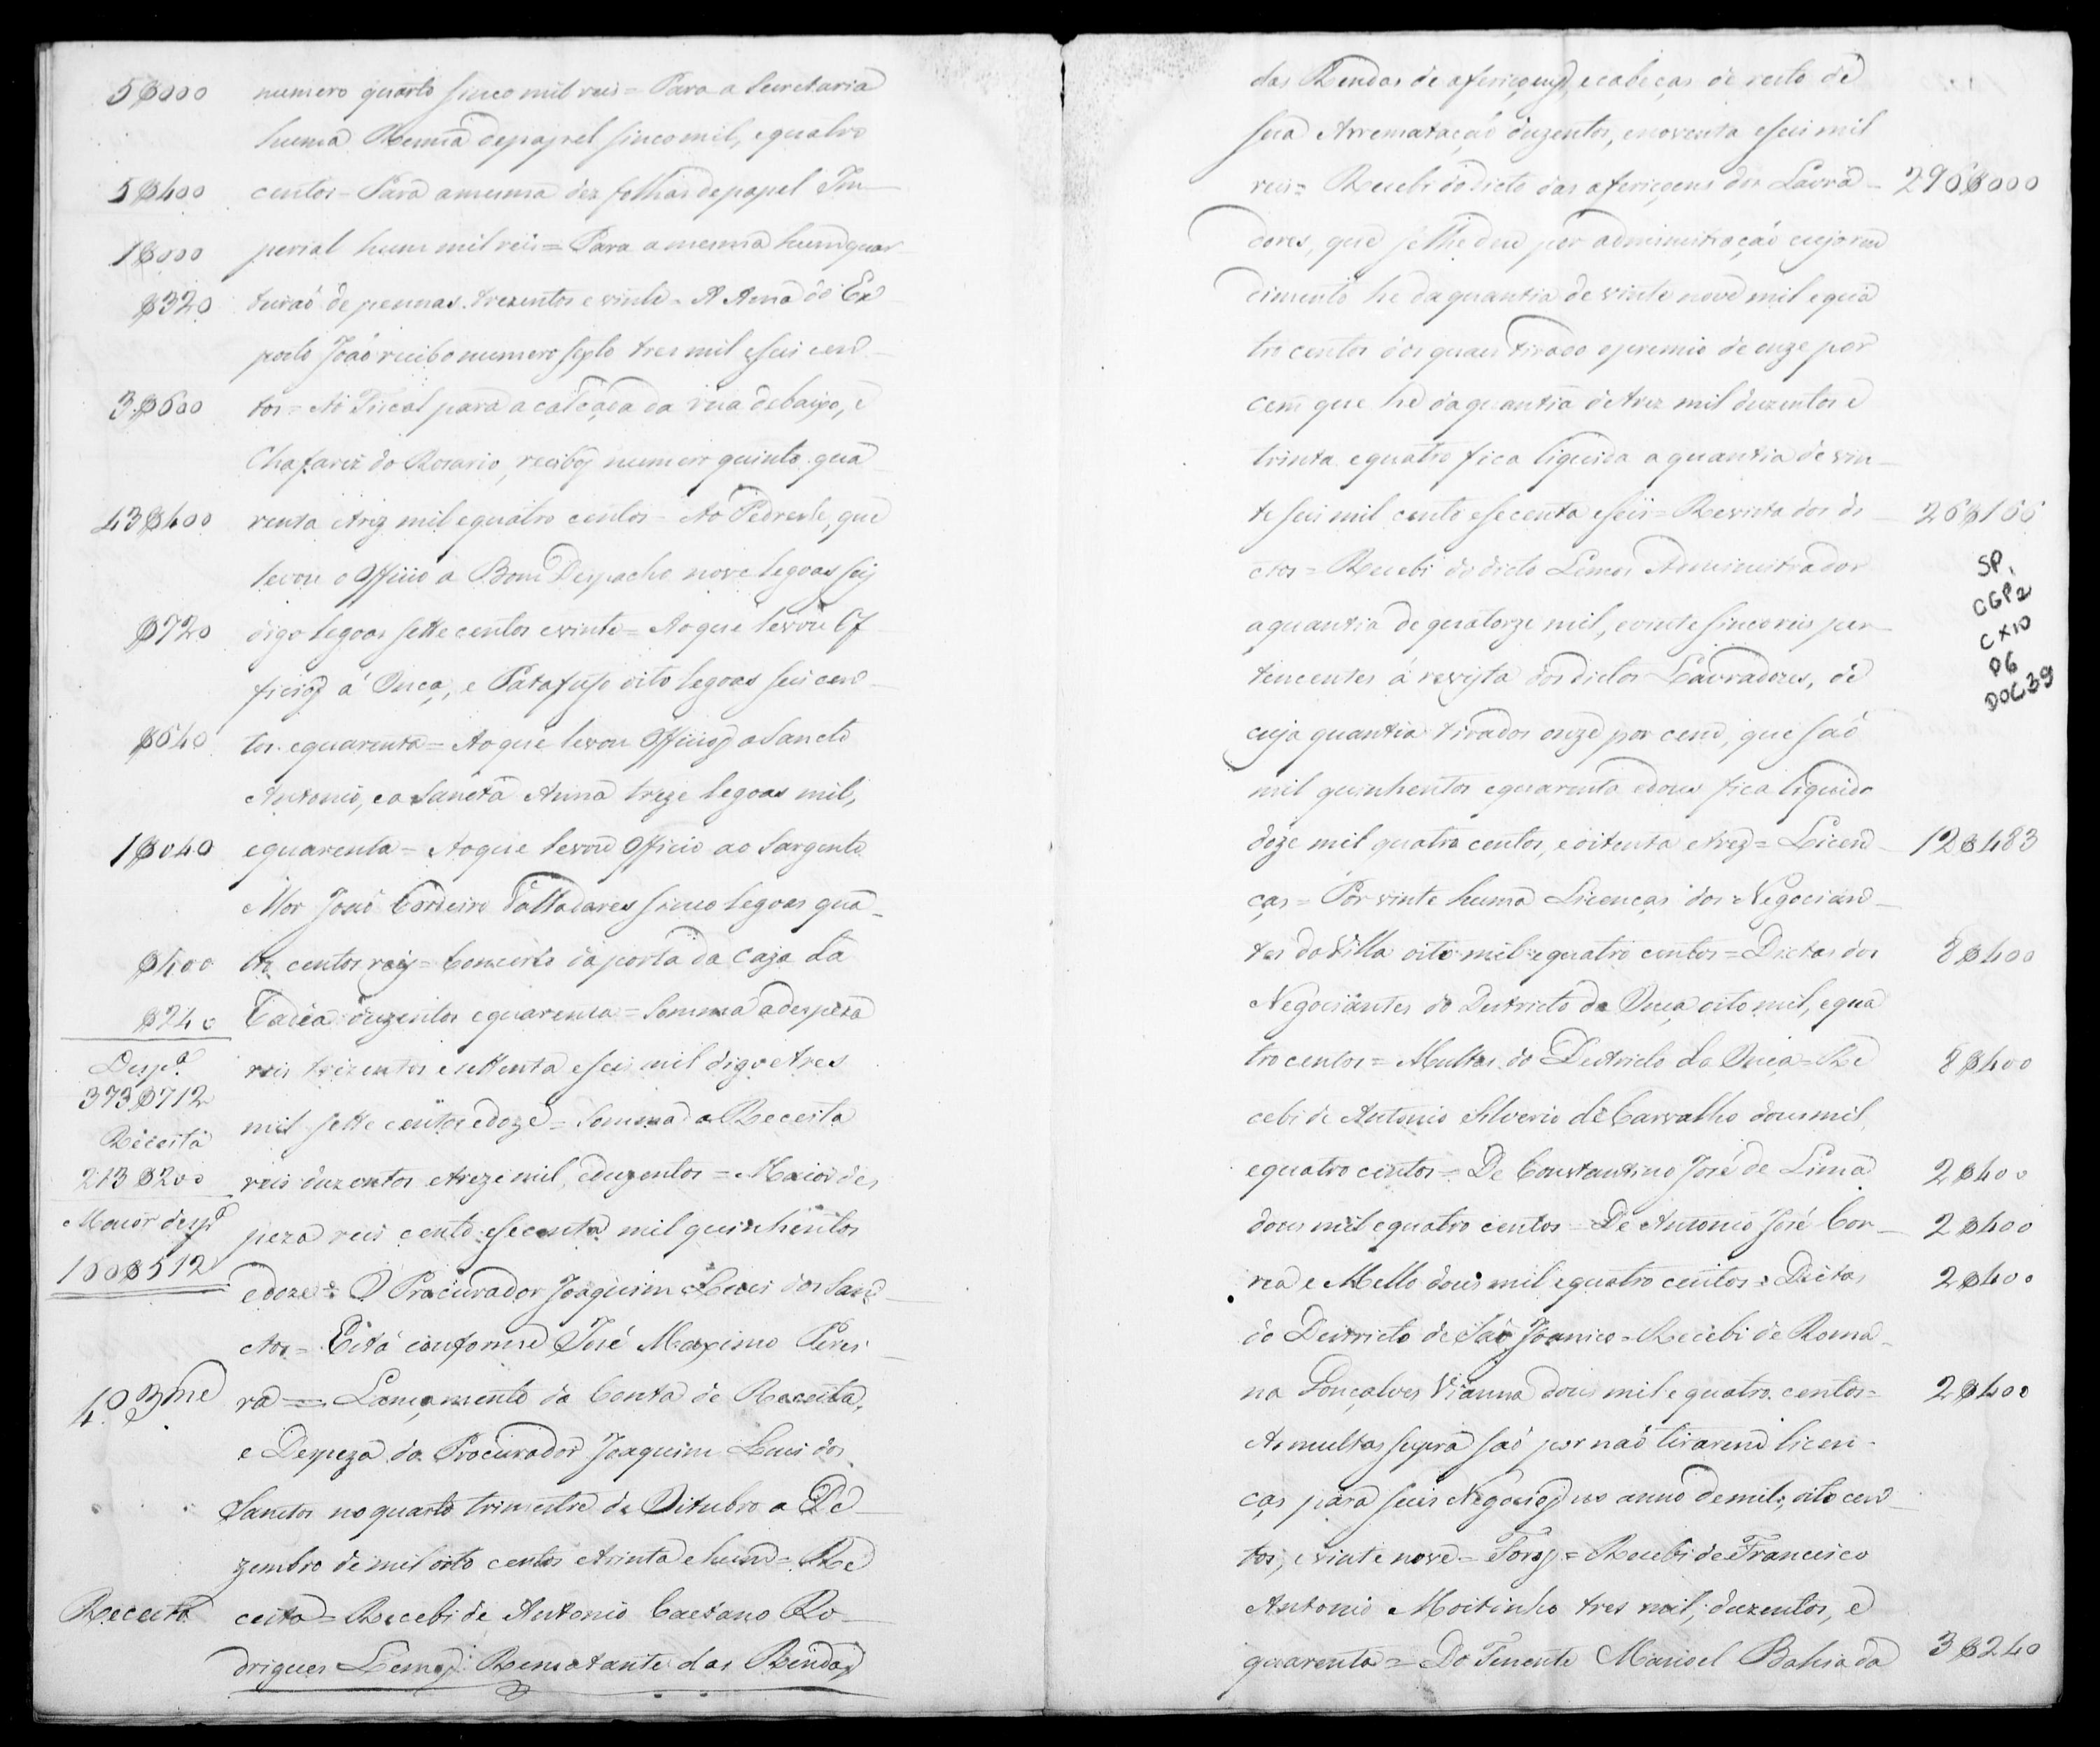 5$000 numero quarto sinco mil reis = Para a Secretaria
huma Resma de papel sinco mil, e quatro
5$400 centos = Para a mesma dez folhas de papel Im-
1$000 perial hum mil reis = Para a mesma hum quar-
$320 teiraõ de pennas trezentos e vinte = A Ama do Ex
posto Joaõ recibo numero sexto tres mil e seis cen-
3$600 tos = Ao Fiscal para a calçada da rua debaixo, e
Chafariz do Rosario, recibos numero quinto qua
43$400 renta e trez mil e quatro centos = Ao Pedreste, que
levou o Officio a Bom Despacho nove legoas seis
$720 digo legoas sette centos e vinte = Ao que levou Of
ficios á Onça, e Patafufo oito legoas seis cen-
$640 tos e quarenta = Ao que levou Officios a Sancto
Antonio, e a Sancta Anna treze legoas mil,
1$040 e quarenta = Ao que levou Officio ao Sargento
Mor José Cordeiro Valladares sinco legoas qua-
$400 tro centos reis = Concerto da porta da Caza da
$240 Cadêa duzentos e quarenta = Somma a despeza
Desp.ª reis trezentos e settenta e seis mil digo e tres
373$712 mil sette centos e doze = Somma a Receita
Receita
213$200 reis duzentos e treze mil, e duzentos = Maior des
Maior desp.ª peza reis cento e secenta mil quinhentos
160$512 e doze = O Procurador Joaquim Luis dos Sanc-
tos = Está conforme José Maximo Perei-
4.º 3me ra = Lançamento da Conta de Receita,
e Despeza do Procurador Joaquim Luis dos
Sanctos no quarto trimestre de Oitubro a De-
zembro de mil oito centos e trinta e hum = Re
Receita ceita = Recebi de Antonio Caetano Ro-
drigues Lemos Rematante das Rendas
das Rendas de aferiçoens, e cabeças de resto de
sua Arremataçaõ duzentos, e noventa e seis mil
reis = Recebi do dicto das aferiçoens dos Lavra- 296$000
dores, que se lhe deu por administraçaõ cujo ren
dimento he da quantia de vinte nove mil e qua
tro centos dos quaes tirado o premio de onze por
cem que he da quantia de trez mil duzentos e
trinta e quatro fica liquida a quantia de vin-
te seis mil cento e secenta e seis = Revista dos di- 26$166
ctos = Recebi do dicto Lemos Administrador
a quantia de quatorze mil, e vinte sinco reis per-
tencentes á revista dos dictos Lavradores, de
cuja quantia tirados onze por cento, que saõ
mil quinhentos e quarenta e dous fica liquido
doze mil quatro centos, e oitenta e trez = Licen- 12$483
ças = Por vinte huma Licenças dos Negocian-
tes da Villa oito mil e quatro centos = Dictas dos 8$400
Negociantes do Districto da Onça oito mil, e qua
tro centos = Multas do Districto da Onça = Re 8$400
cebi de Antonio Silverio de Carvalho dous mil
e quatro centos = De Constantino José de Lima 2$400
dous mil e quatro centos = De Antonio José Cor- 2$400
rea e Mello dous mil e quatro centos = Dictas 2$400
do Districto de Saõ Joanico = Recebi de Roma-
na Gonçalves Vianna dous mil e quatro centos = 2$400
As multas supra saõ por naõ tirarem licen-
ças para seus Negocios no anno de mil, oito cen-
tos, e vinte nove = Foros = Recebi de Francisco
Antonio Moitinho tres mil, duzentos, e
quarenta = Do Tenente Manoel Bahia da 3$240
SP,
CGP2
CX10
06
DOC39